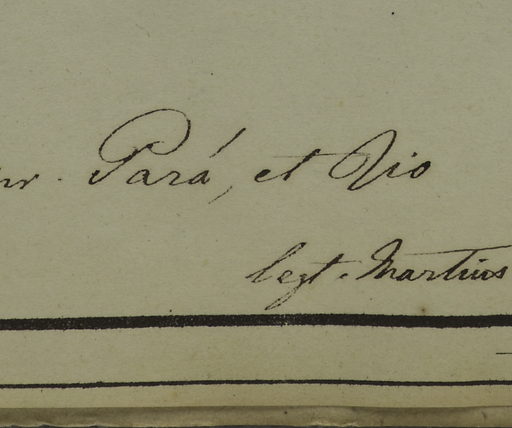 Pará, et Rio
legt. Martius